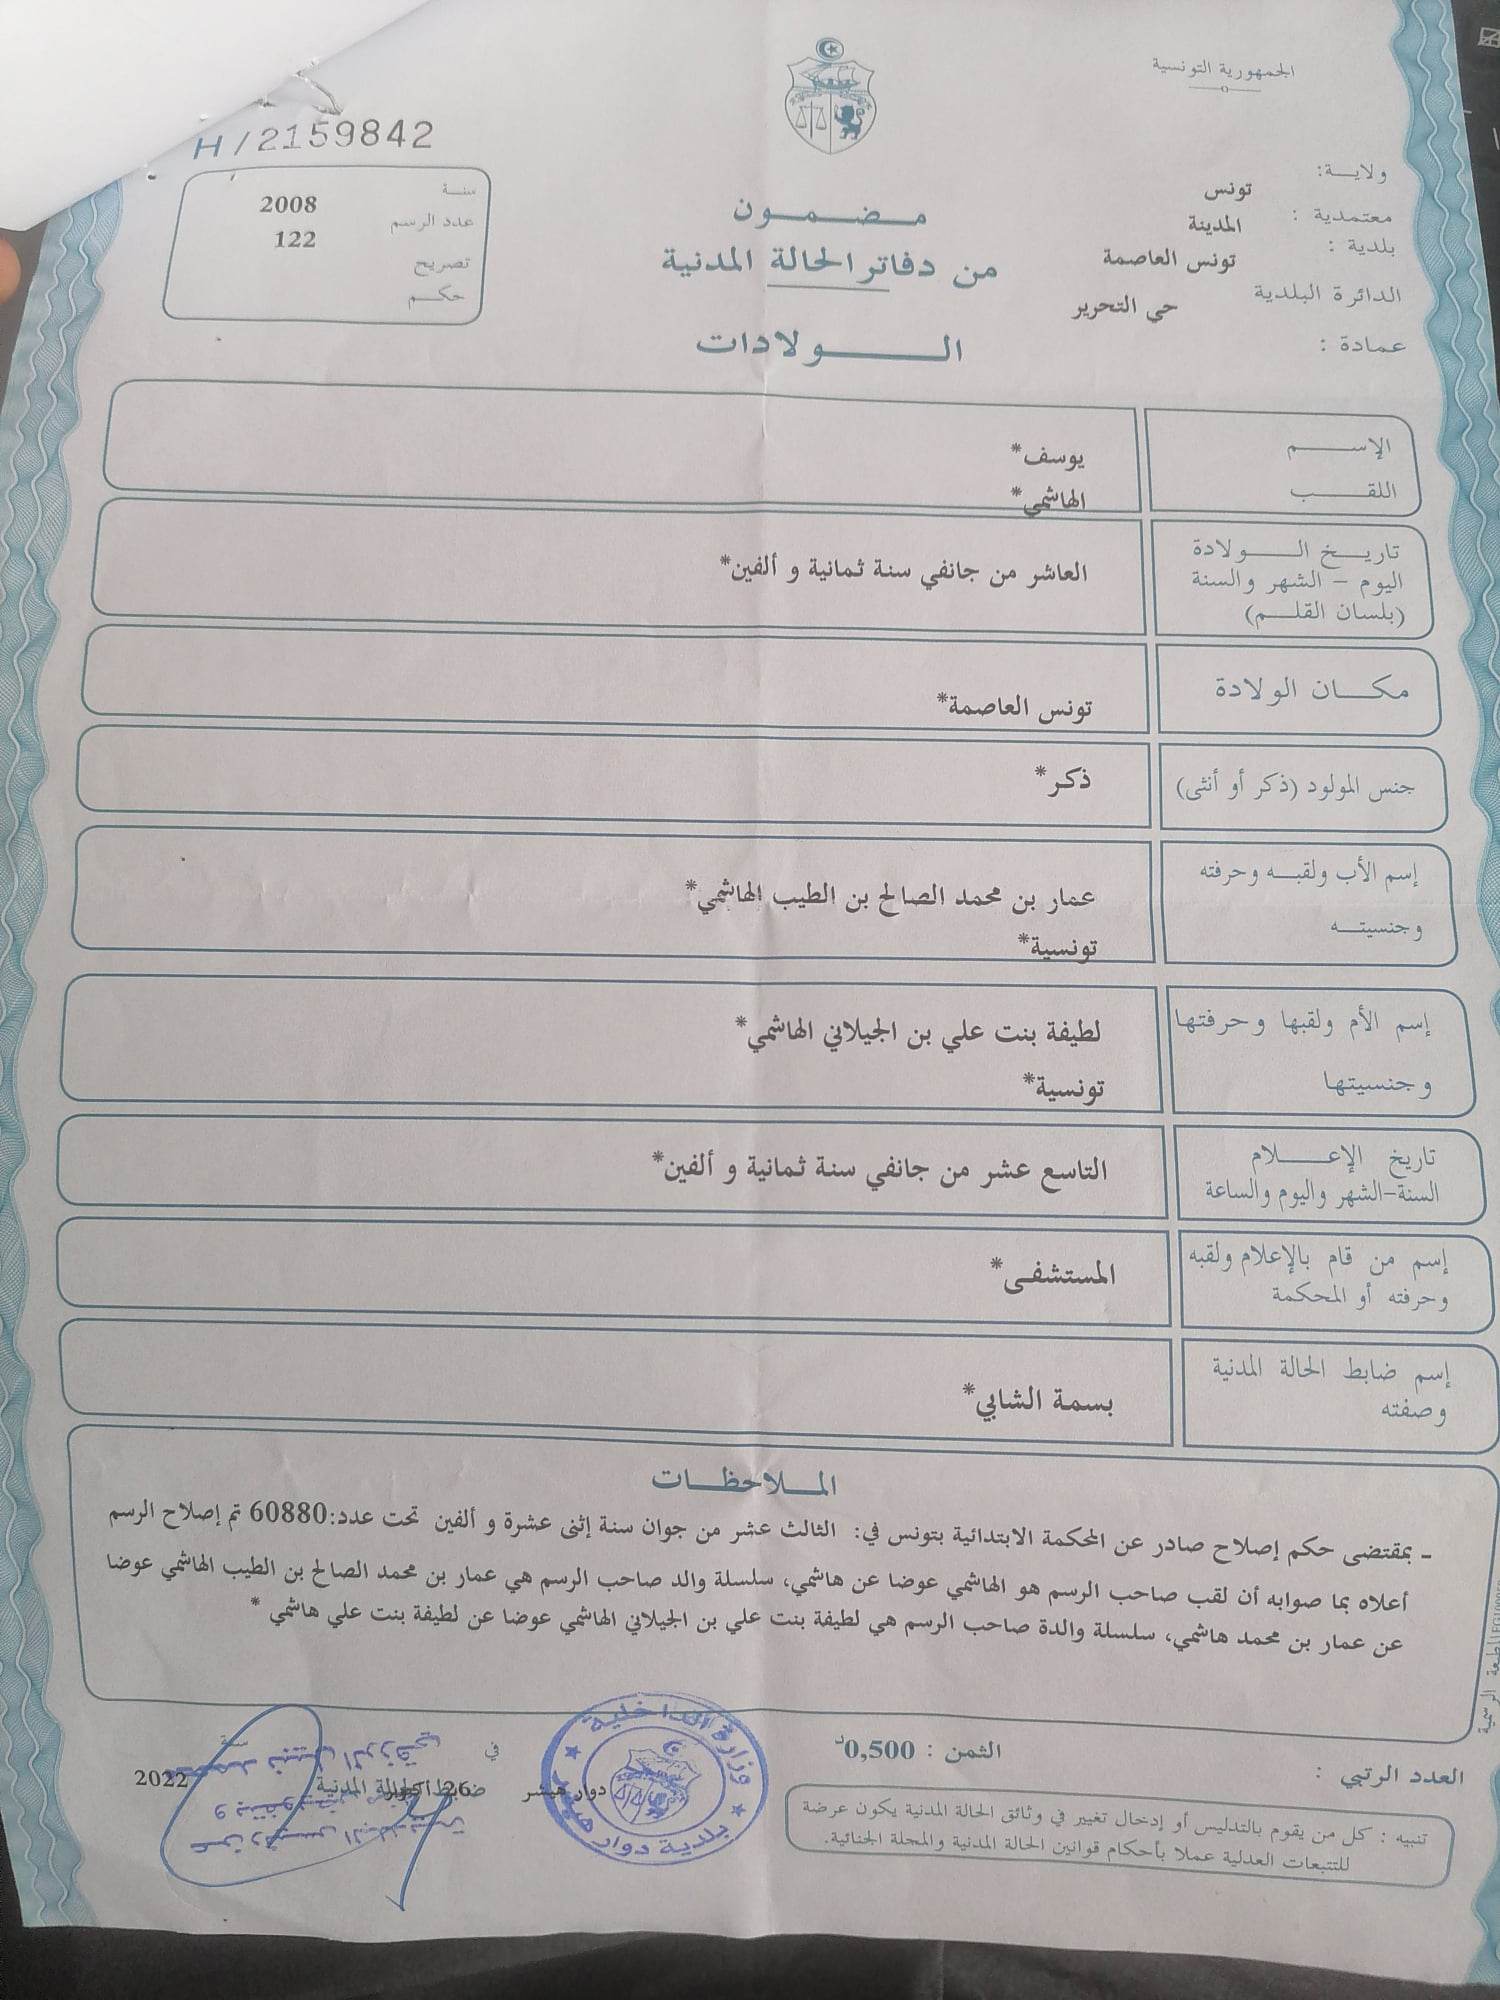 الجمهورية التونسية
H/2159842
ولاية: تونس
معتمدية : المدينة
بلدية : تونس العاصمة
الدائرة البلدية حي التحرير
عمادة :
سنة 2008
عدد الرسم 122
تصريح
حكم
مضمون
من دفاتر الحالة المدنية
الولادات
الإسم يوسف*
اللقب الهاشمي*
تاريخ الولادة
اليوم - الشهر والسنة
(بلسان القلم)
العاشر من جانفي سنة ثمانية و ألفين*
مكان الولادة تونس العاصمة*
جنس المولود (ذكر أو أنثى) ذكر*
إسم الأب ولقبه وحرفته
وجنسيته
عمار بن محمد الصالح بن الطيب الهاشمي*
تونسية*
إسم الأم ولقبها وحرفتها
وجنسيتها
لطيفة بنت علي بن الجيلاني الهاشمي*
تونسية*
تاريخ الإعلام
السنة-الشهر واليوم والساعة
التاسع عشر من جانفي سنة ثمانية و ألفين*
إسم من قام بالإعلام ولقبه
وحرفته أو المحكمة
المستشفى*
إسم ضابط الحالة المدنية
وصفته
بسمة الشابي*
الملاحظات
- بمقتضى حكم إصلاح صادر عن المحكمة الابتدائية بتونس في: الثالث عشر من جوان سنة إثنى عشرة و ألفين تحت عدد:60880 تم إصلاح الرسم
أعلاه بما صوابه أن لقب صاحب الرسم هو الهاشمي عوضا عن هاشمي، سلسلة والد صاحب الرسم هي عمار بن محمد الصالح بن الطيب الهاشمي عوضا
عن عمار بن محمد هاشمي، سلسلة والدة صاحب الرسم هي لطيفة بنت علي بن الجيلاني الهاشمي عوضا عن لطيفة بنت علي هاشمي *
العدد الرتبي :
الثمن : 0,500د
تنبيه : كل من يقوم بالتدليس أو إدخال تغيير في وثائق الحالة المدنية يكون عرضة
للتتبعات العدلية عملا بأحكام قوانين الحالة المدنية والمجلة الجنائية.
وزارة الداخلية
بلدية دوار هيشر
دوار هيشر في 26 سنة 2022
ضابط الحالة المدنية